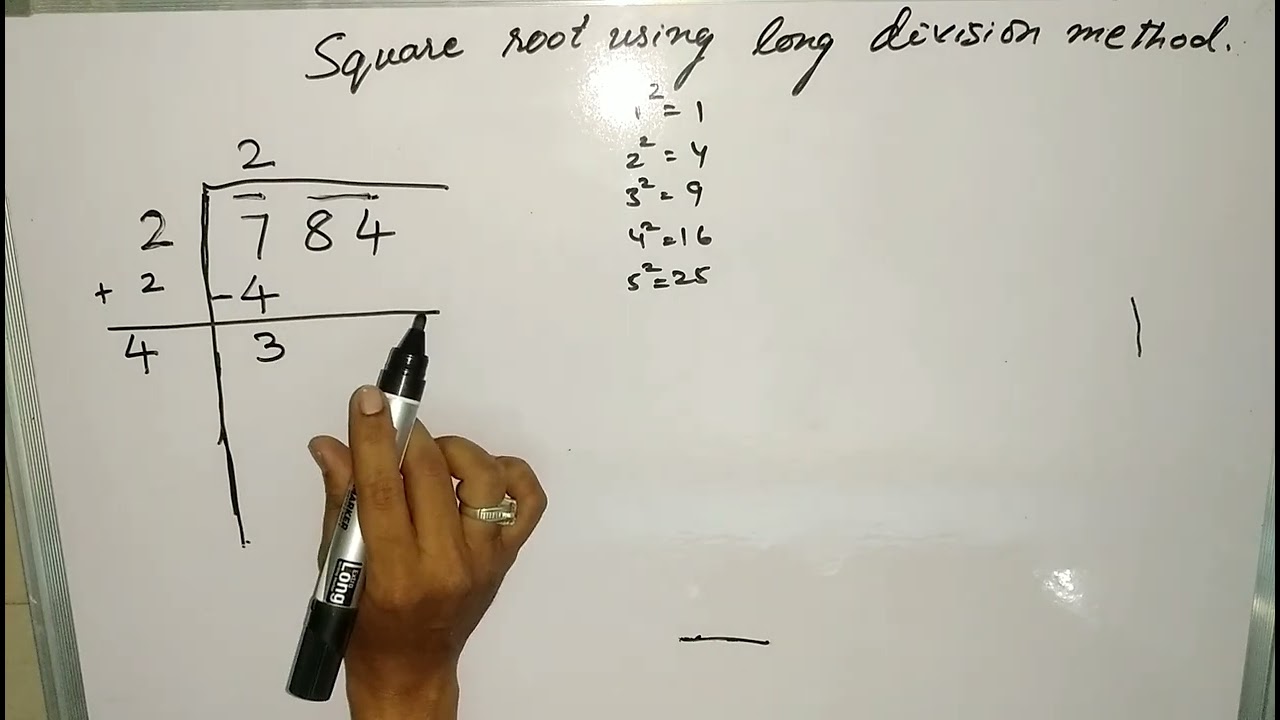 Square root using long division method.
1² = 1
2² = 4
3² = 9
4² = 16
5² = 25
2
2 7 84
+ 2 -4
4 3
MARKER
Luxor
Long